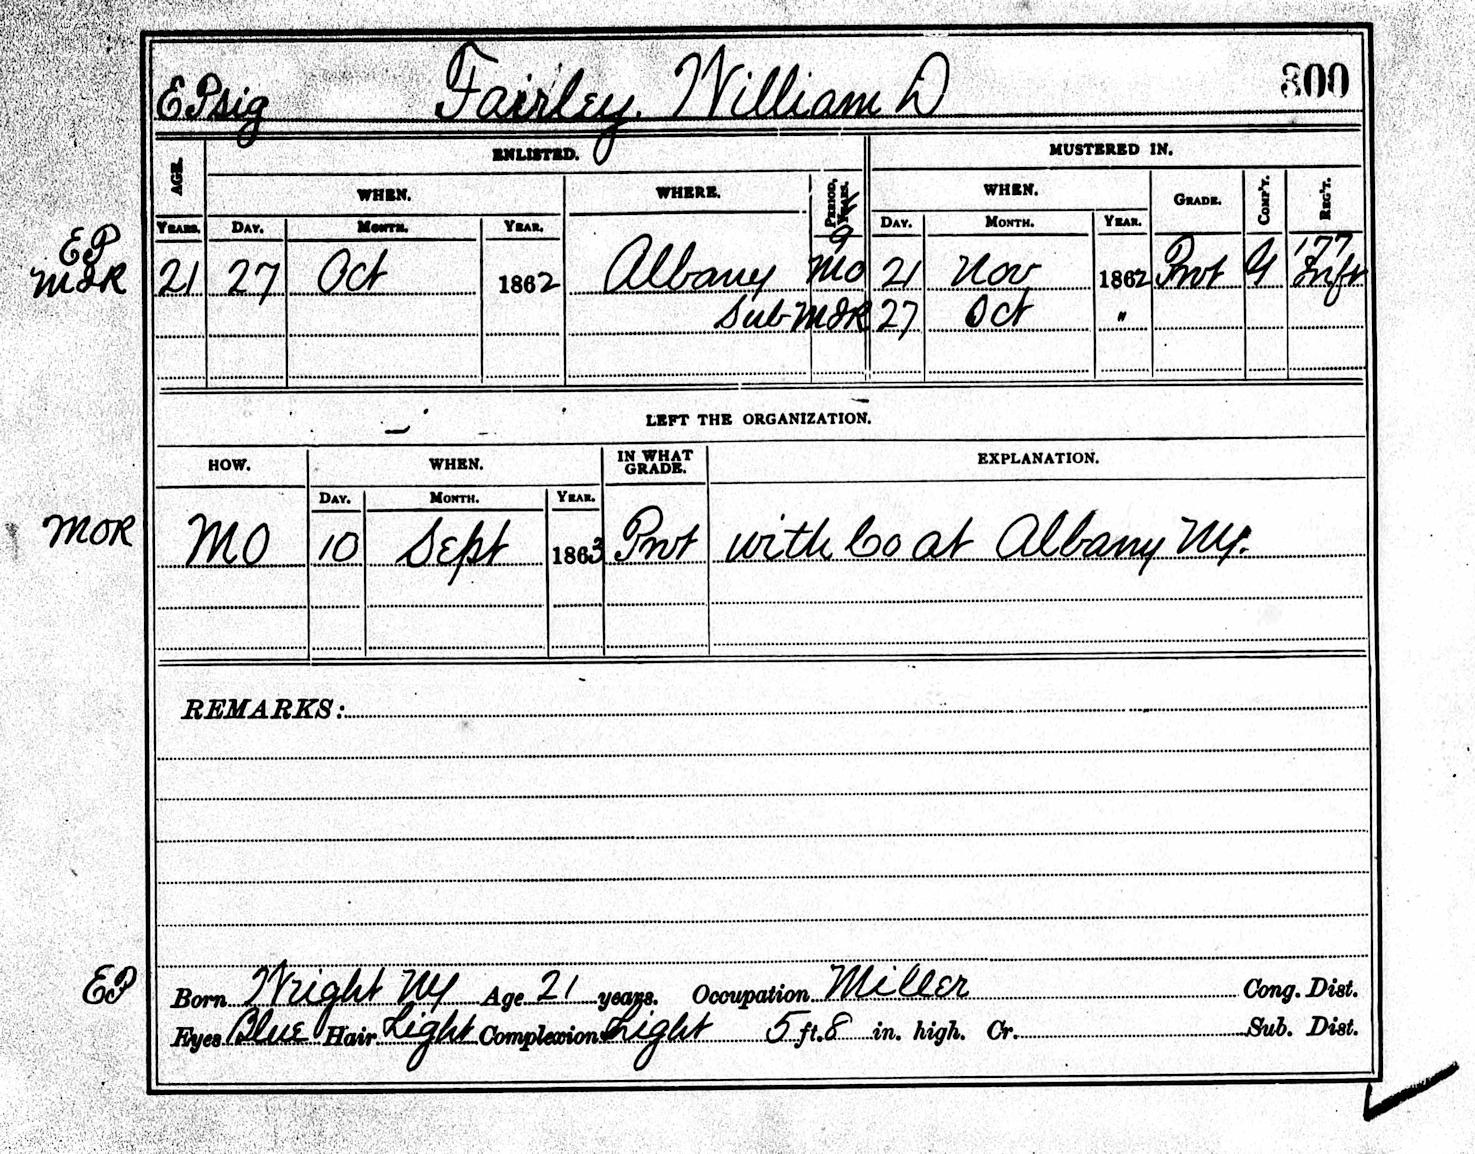 EPsig Fairley, William D 300
ENLISTED. MUSTERED IN.
AGE. WHEN. WHERE. PERIOD, YEARS. WHEN. GRADE. COMP'Y. REG'T.
YEARS. DAY. MONTH. YEAR. DAY. MONTH. YEAR.
EP 9 177
MIR 21 27 Oct 1862 Albany Mo 21 Nov 1862 Prvt G Infr
Sub MIR 27 Oct "
LEFT THE ORGANIZATION.
HOW. WHEN. IN WHAT GRADE. EXPLANATION.
DAY. MONTH. YEAR.
MOR MO 10 Sept 1863 Prvt with Co at Albany NY.
REMARKS:
EP Born Wright NY Age 21 years. Occupation Miller Cong. Dist.
Eyes Blue Hair Light Complexion Light 5 ft. 8 in. high. Cr. Sub. Dist.